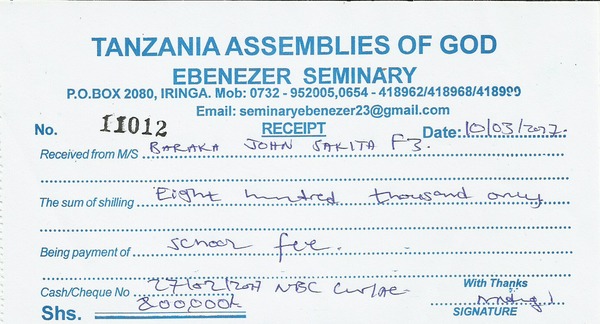 TANZANIA ASSEMBLIES OF GOD
EBENEZER SEMINARY
P.O.BOX 2080, IRINGA. Mob: 0732 - 952005,0654 - 418962/418968/418999
Email: seminaryebenezer23@gmail.com
No. 11012 RECEIPT Date: 10/03/2017.
Received from M/S BARAKA JOHN SAKITA F3.
The sum of shilling Eight hundred thousand only
Being payment of school fee.
Cash/Cheque No 27/02/2017 NBC With Thanks
Shs. 800,000/= SIGNATURE